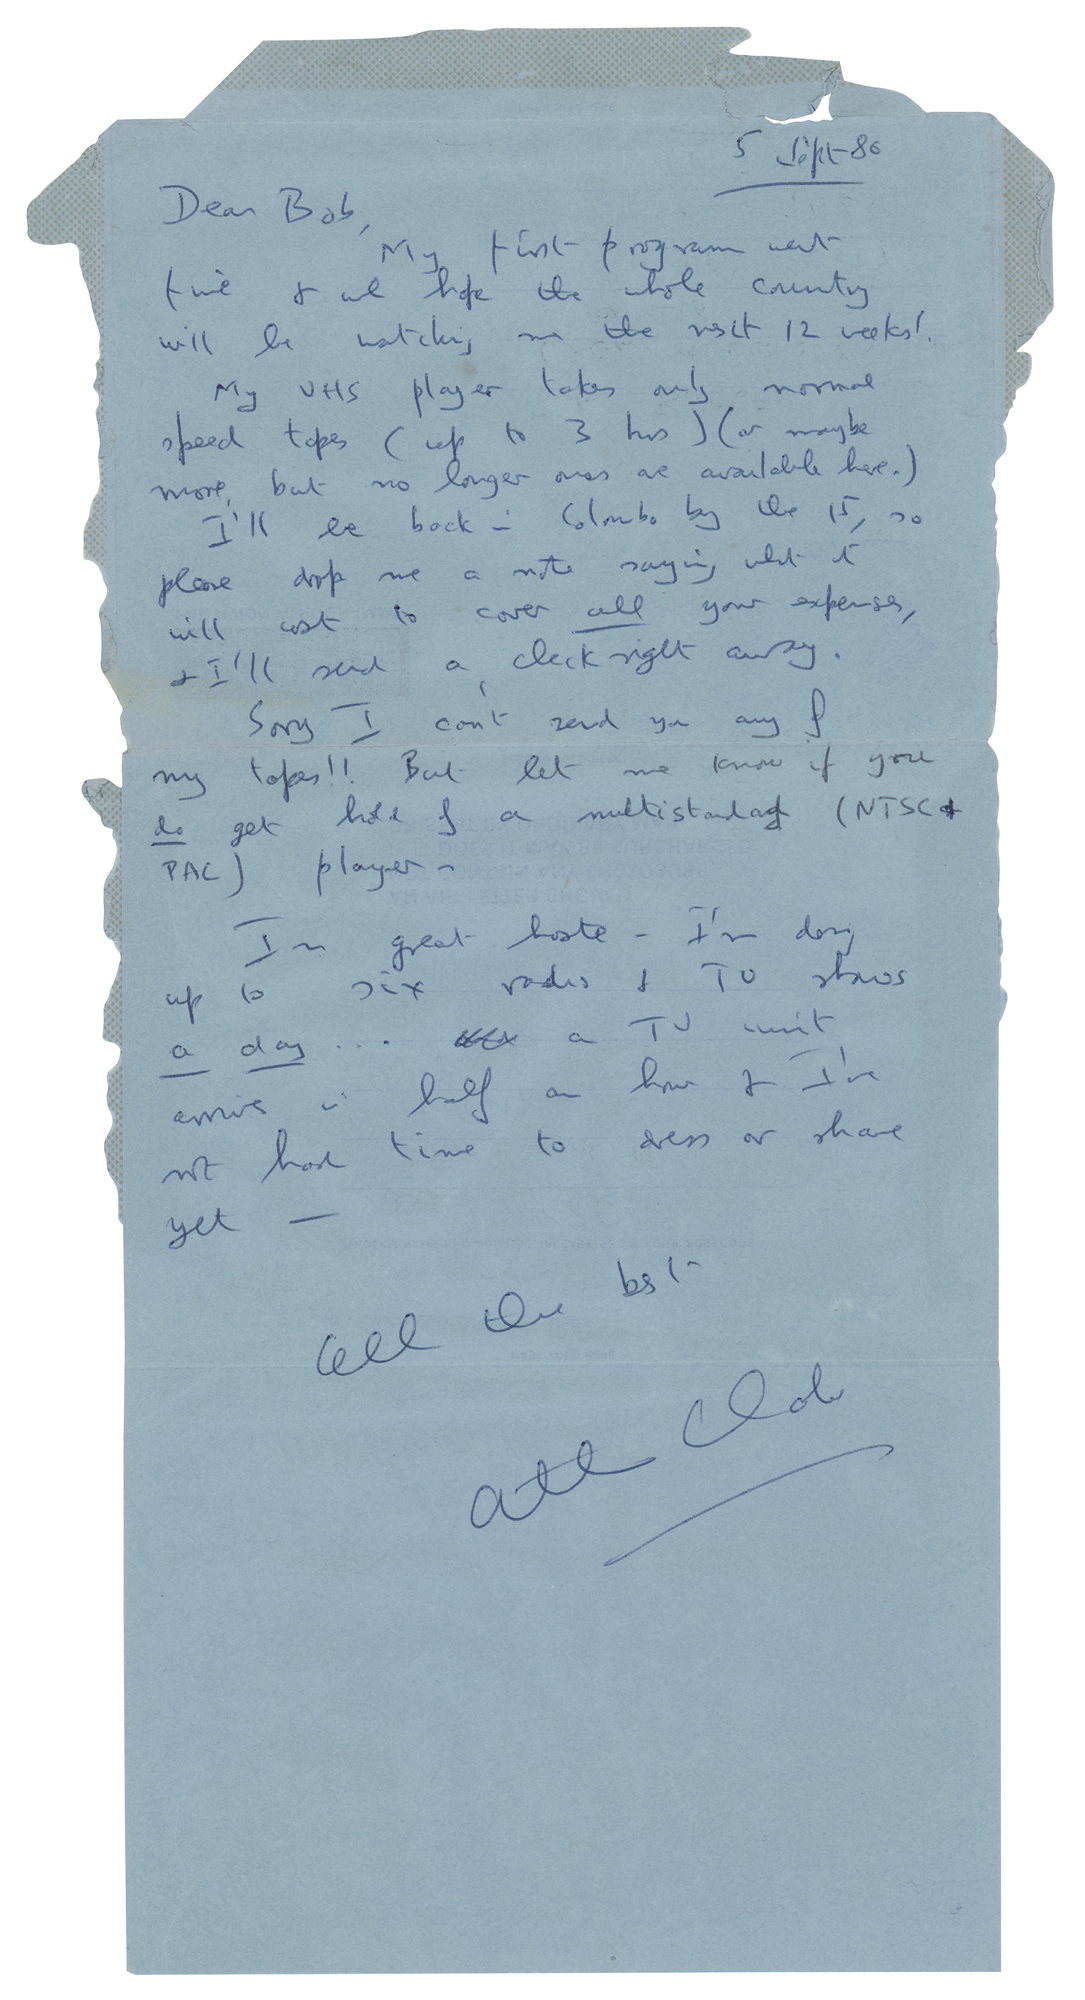 5 Sept 80
Dear Bob,
My first program went
fine & we hope the whole country
will be watching me the next 12 weeks!
My VHS player takes only normal
speed tapes (up to 3 hrs) (or maybe
more, but no longer ones are available here.)
I'll be back in Colombo by the 15, so
please drop me a note saying what it
will cost to cover all your expenses,
& I'll send a check right away.
Sorry I can't send you any of
my tapes!! But let me know if you
do get hold of a multistandard (NTSC &
PAL) player -
In great haste - I'm doing
up to six radio & TV shows
a day ... a TV unit
arrives in half an hour & I've
not had time to dress or shave
yet —
All the best
Arthur Clarke